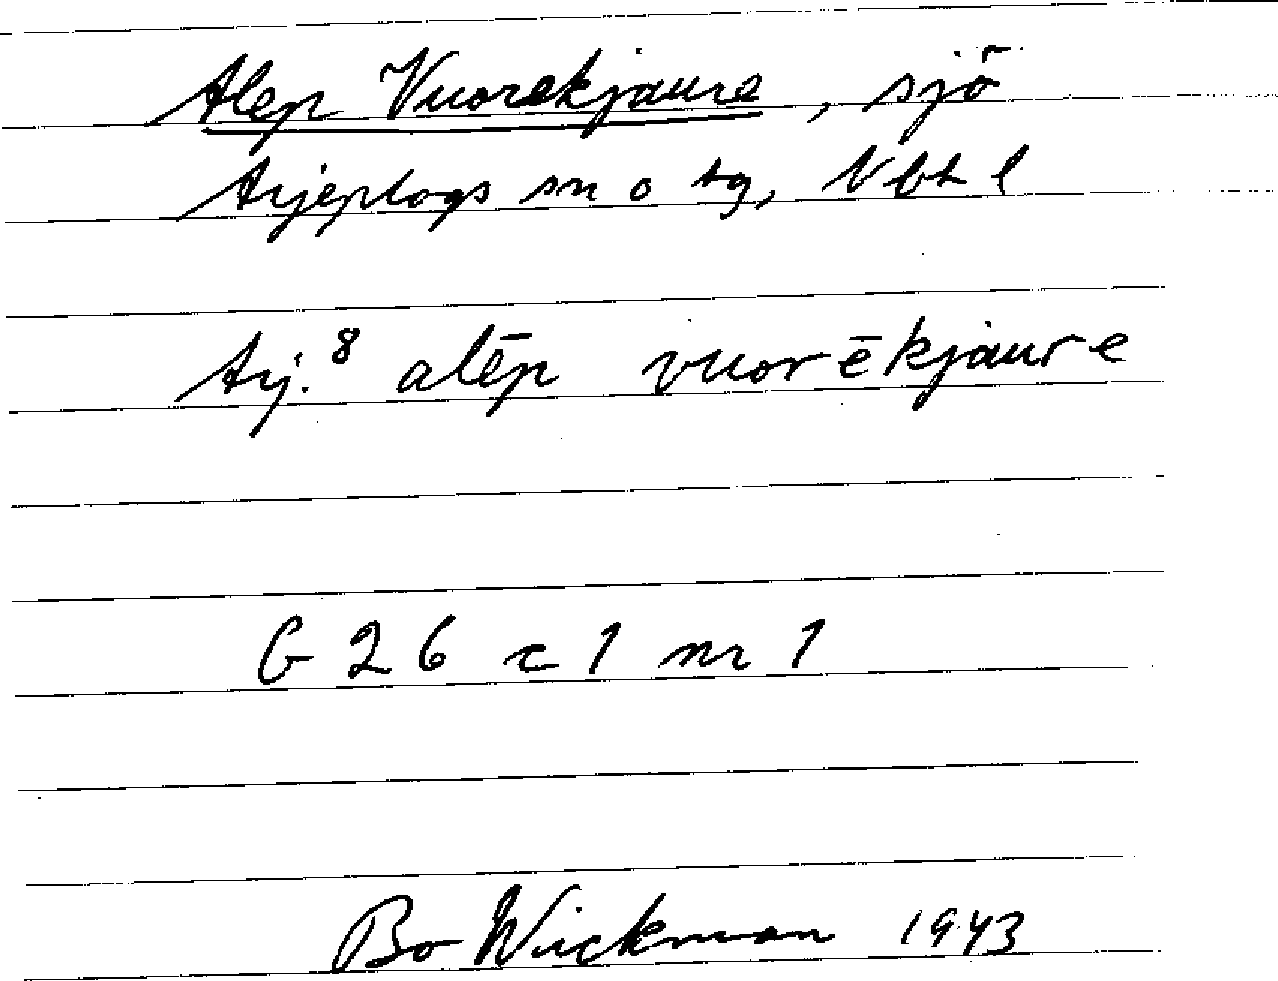 Alep Vuorekjaure, sjö
Arjeplogs sn o tg, Vbt l
Arj.⁸ alēp vuorēkjaure
G 26 c 1 nr 1
Bo Wickman 1943